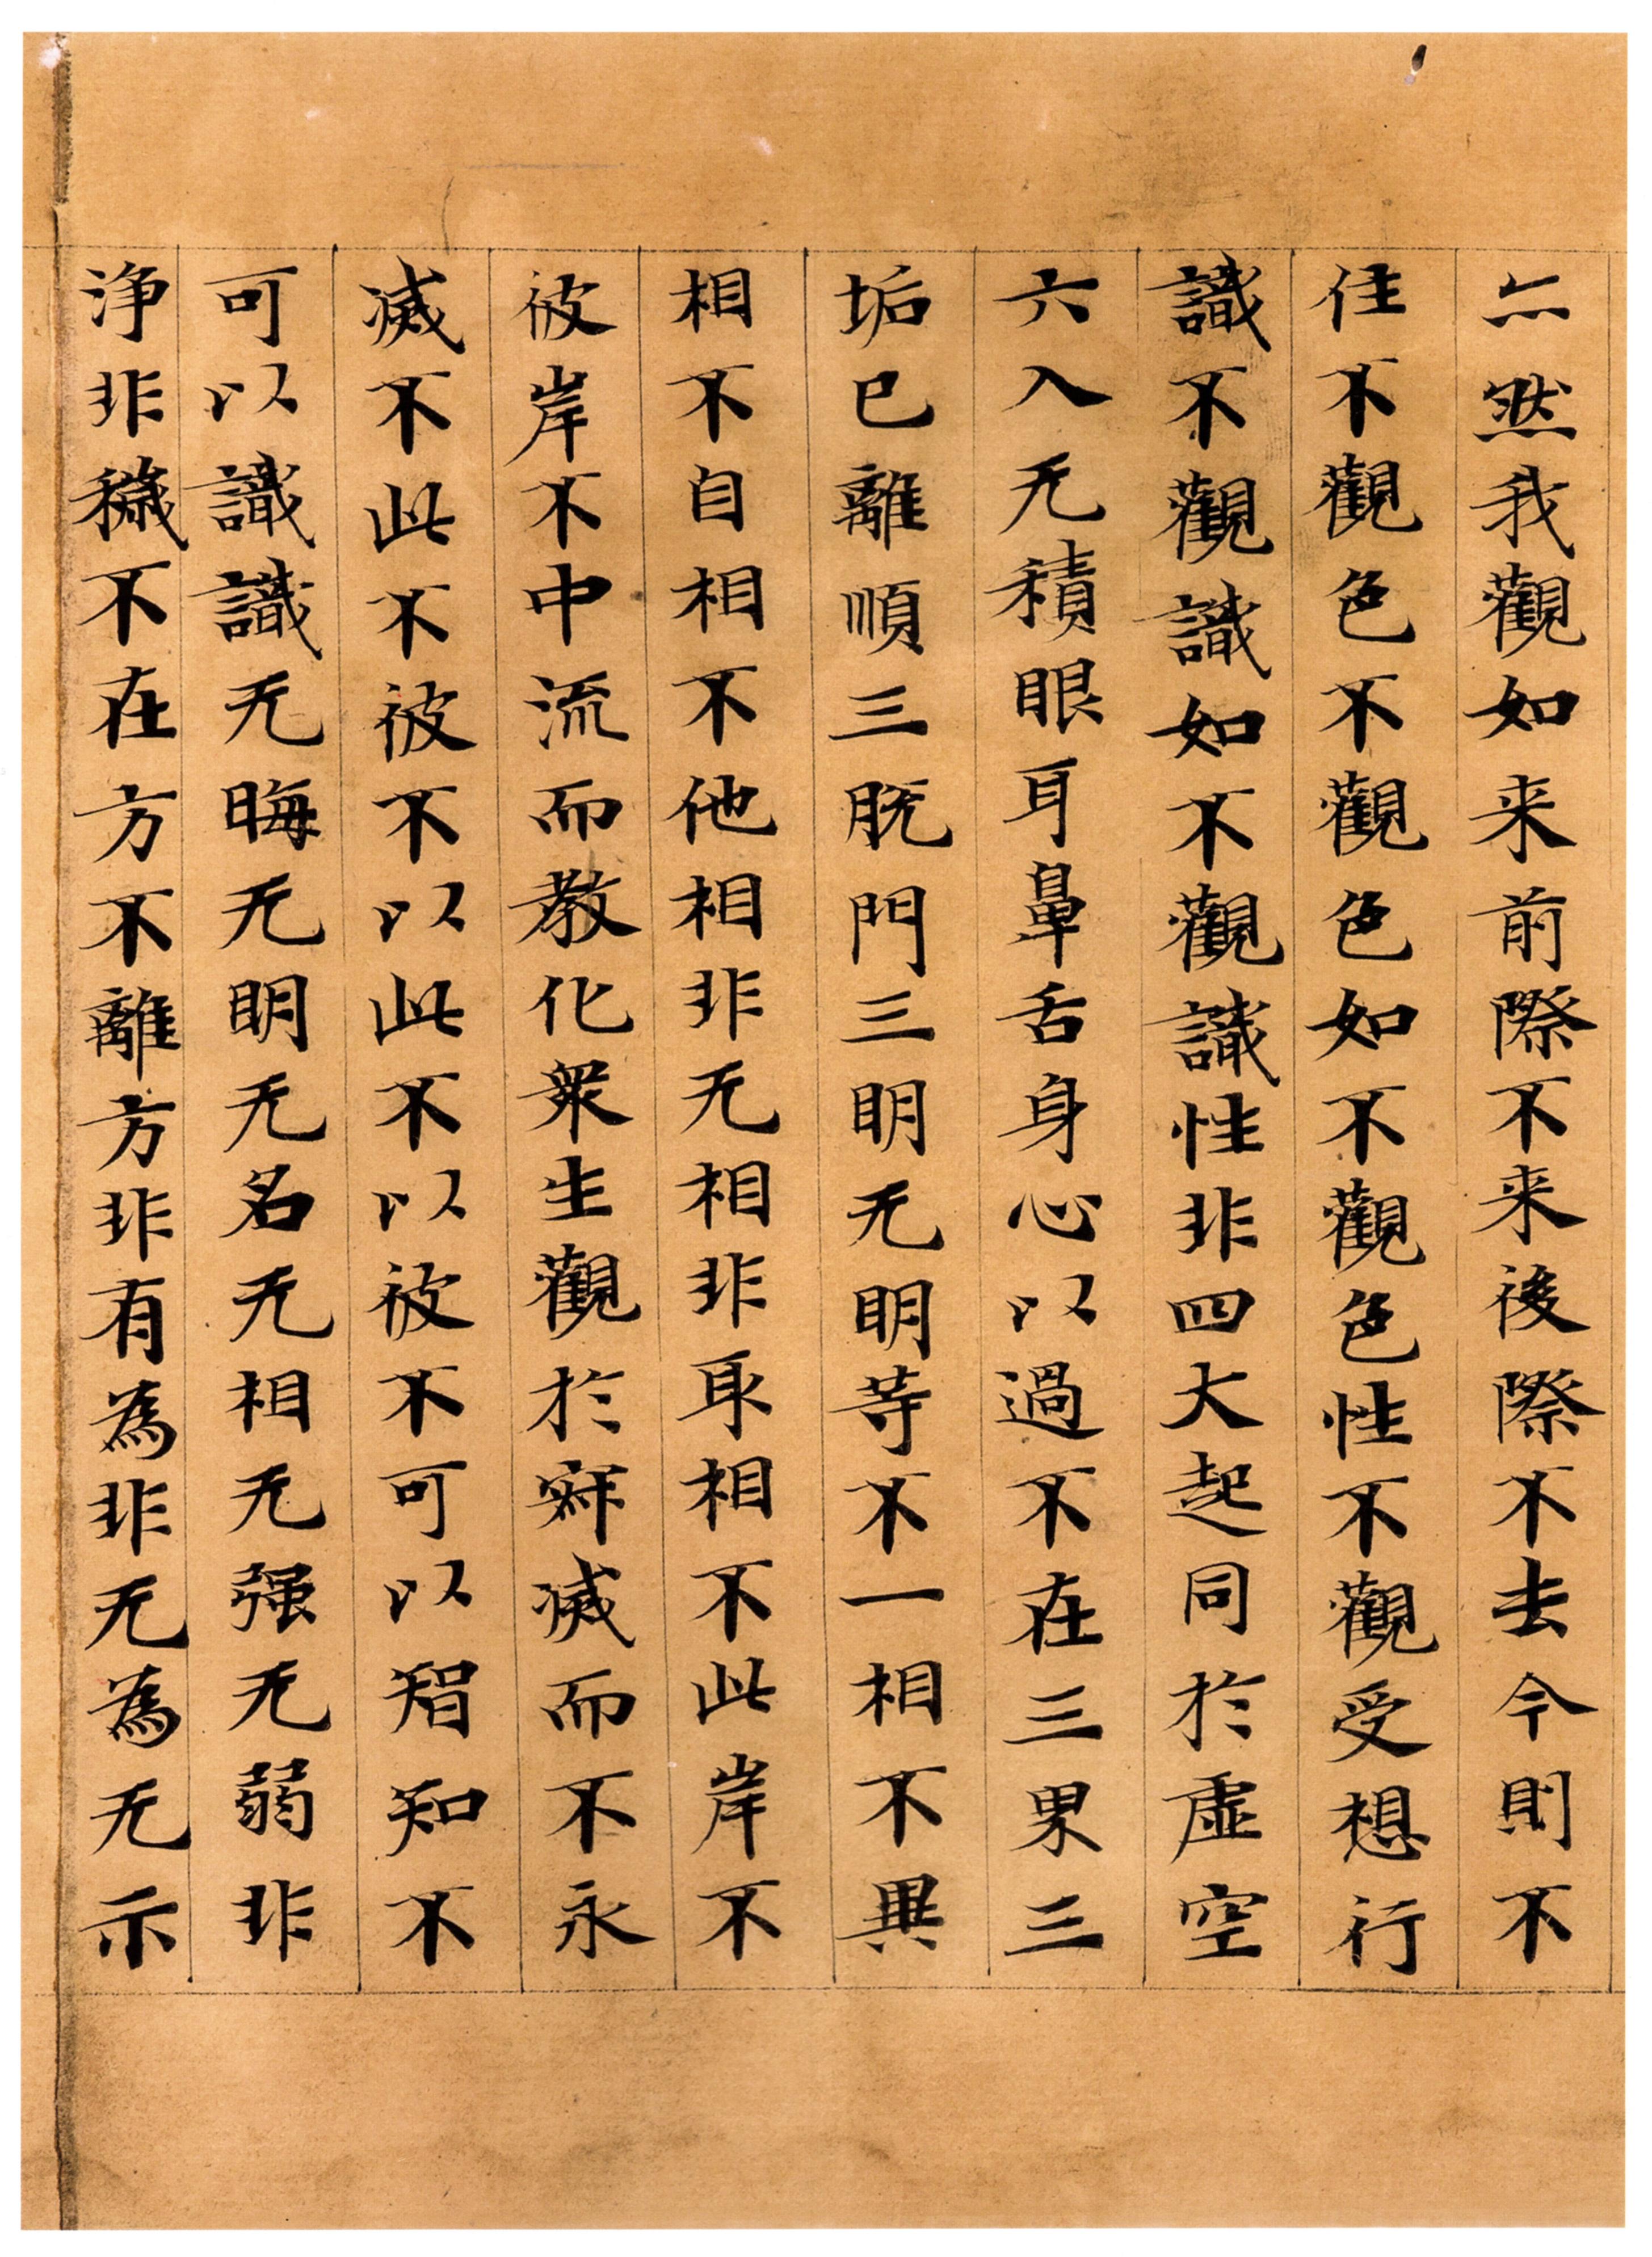 亠然我觀如来前際不来後際不去今則不
住不觀色不觀色如不觀色性不觀受想行
識不觀識如不觀識性非四大起同於虛空
六入无積眼耳鼻舌身心以過不在三界三
垢已離順三脱門三明无明等不一相不異
相不自相不他相非无相非取相不此岸不
彼岸不中流而教化衆生觀於寂滅而不永
滅不此不彼不以此不以彼不可以智知不
可以識識无晦无明无名无相无强无弱非
淨非穢不在方不離方非有為非无為无示